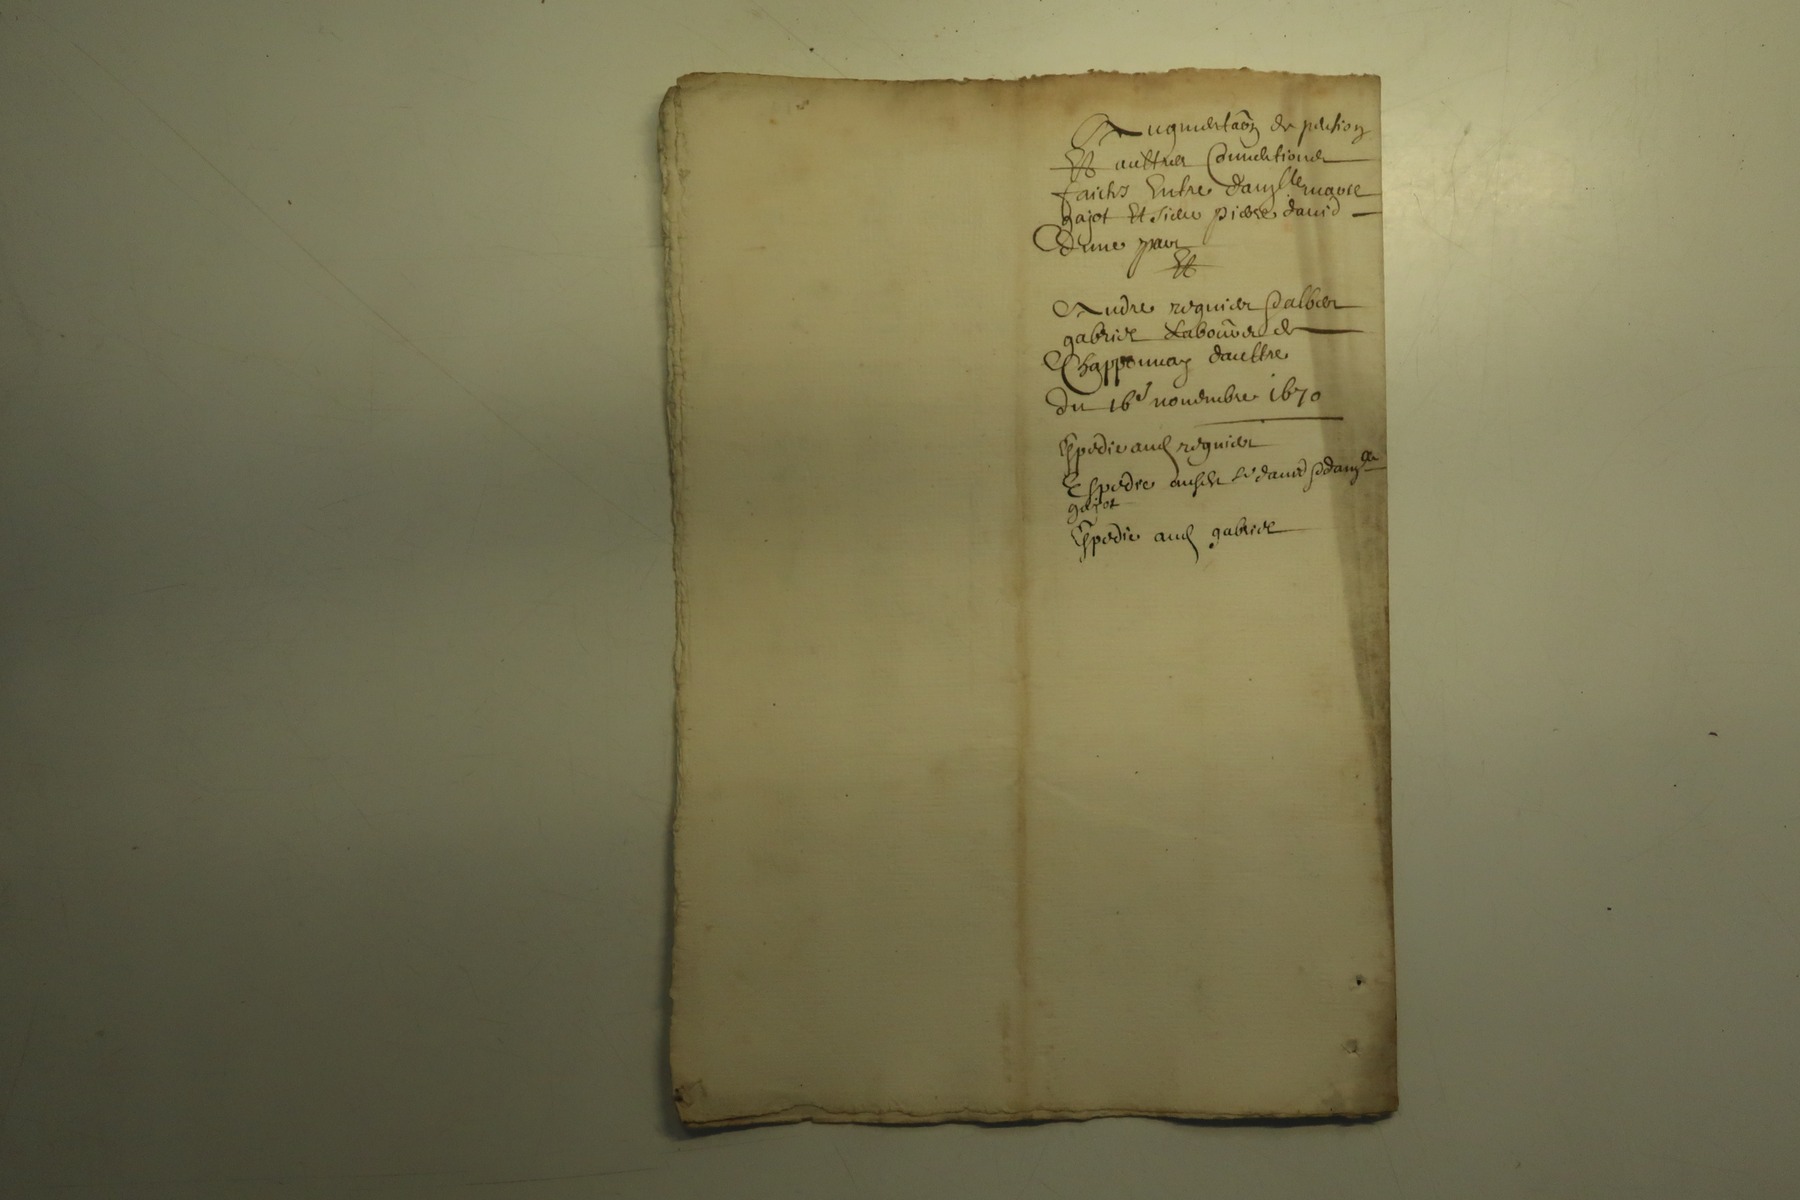 Augmentaõn de pension
Et auttres Conventions
faictes Entre damlle marie
gajot Et sieur pierre david
dune part
Et
Andre regnier &
gabriel Laboureur de
Chapponnay dauttre
du 16e novembre 1670
Expedie aud regnier
Expedie ausd sr david & damlle
gajot
Expedie aud gabriel